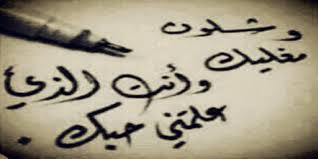 وشلون
مغليك
وأنت الذي
علمتني حبك .